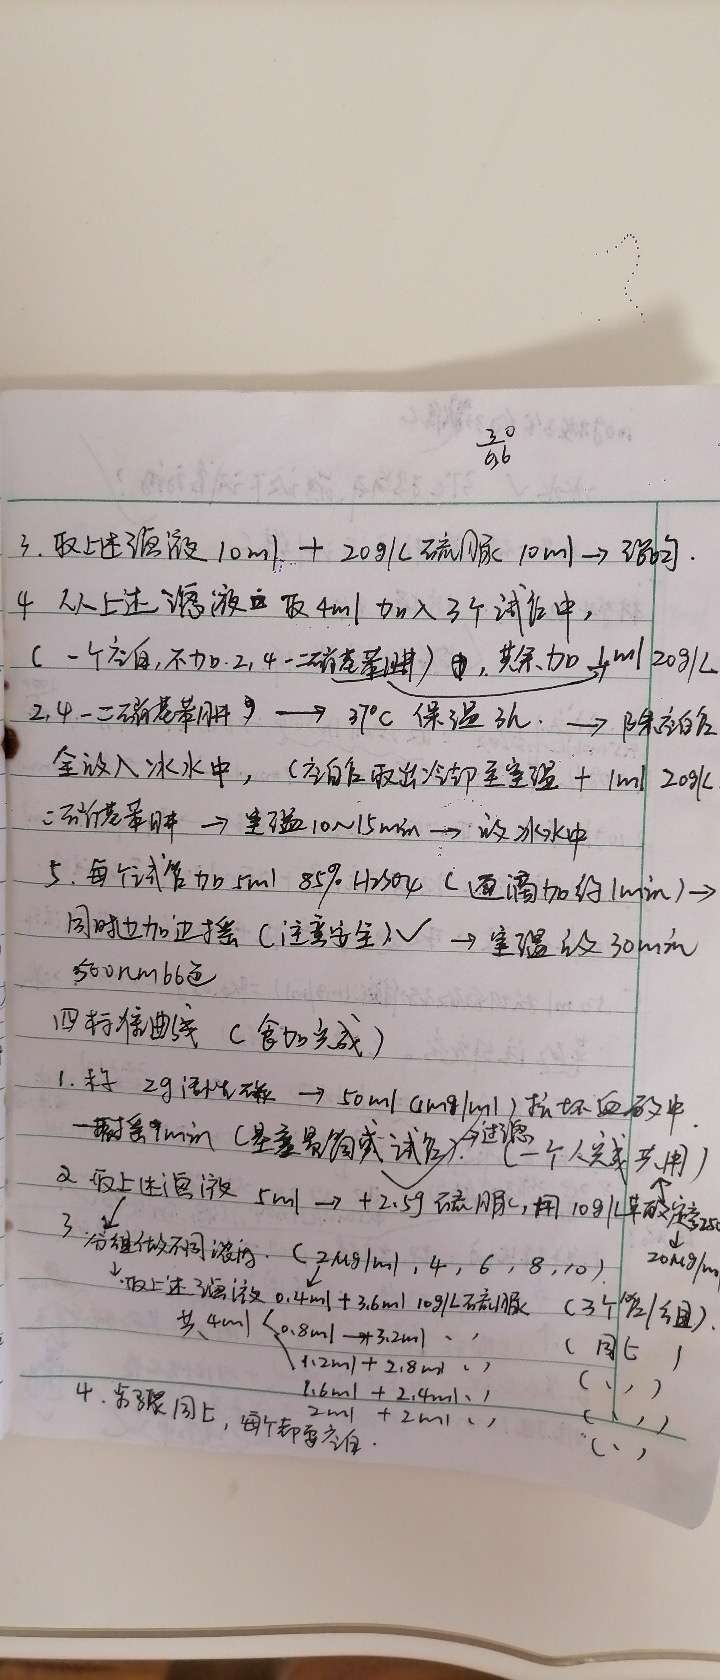 30
3. 取上述滤液 10ml + 20g/L 硫脲 10ml → 混匀.
4 从上述滤液 取 4ml 加入 3个试管中,
( 一个空白, 不加 2,4-二硝基苯肼 ) 其余加 1ml 20g/L
2,4-二硝基苯肼 → 37°C 保温 3h. → 除空白管
全放入冰水中, (空白管取出冷却至室温 + 1ml 20g/L
二硝基苯肼 → 室温 10~15min → 放冰水中
5. 每个试管加 5ml 85% H2SO4 (逐滴加 约1min) →
同时边加边摇 (注意安全) ✓ → 室温放 30min
500nm比色
四 标准曲线 ( 完成)
1. 称 2g 活性碳 → 50ml (1mg/ml) 抗坏血酸中.
摇 1min ( 或试管) → 过滤 (一个人完成 共用)
2 取上述滤液 5ml → + 2.5g 硫脲, 用 10g/L 草酸定容
20μg/ml
3 分组做不同浓度. (2μg/ml, 4, 6, 8, 10)
取上述滤液 0.4ml + 3.6ml 10g/L硫脲 (3个管/组).
共 4ml 0.8ml → 3.2ml 、、 ( 同上 )
1.2ml + 2.8ml 、、 ( 、、 )
1.6ml + 2.4ml 、、 ( 、、 )
2ml + 2ml 、、 ( 、、 )
4. 步骤同上, 每个都要空白.